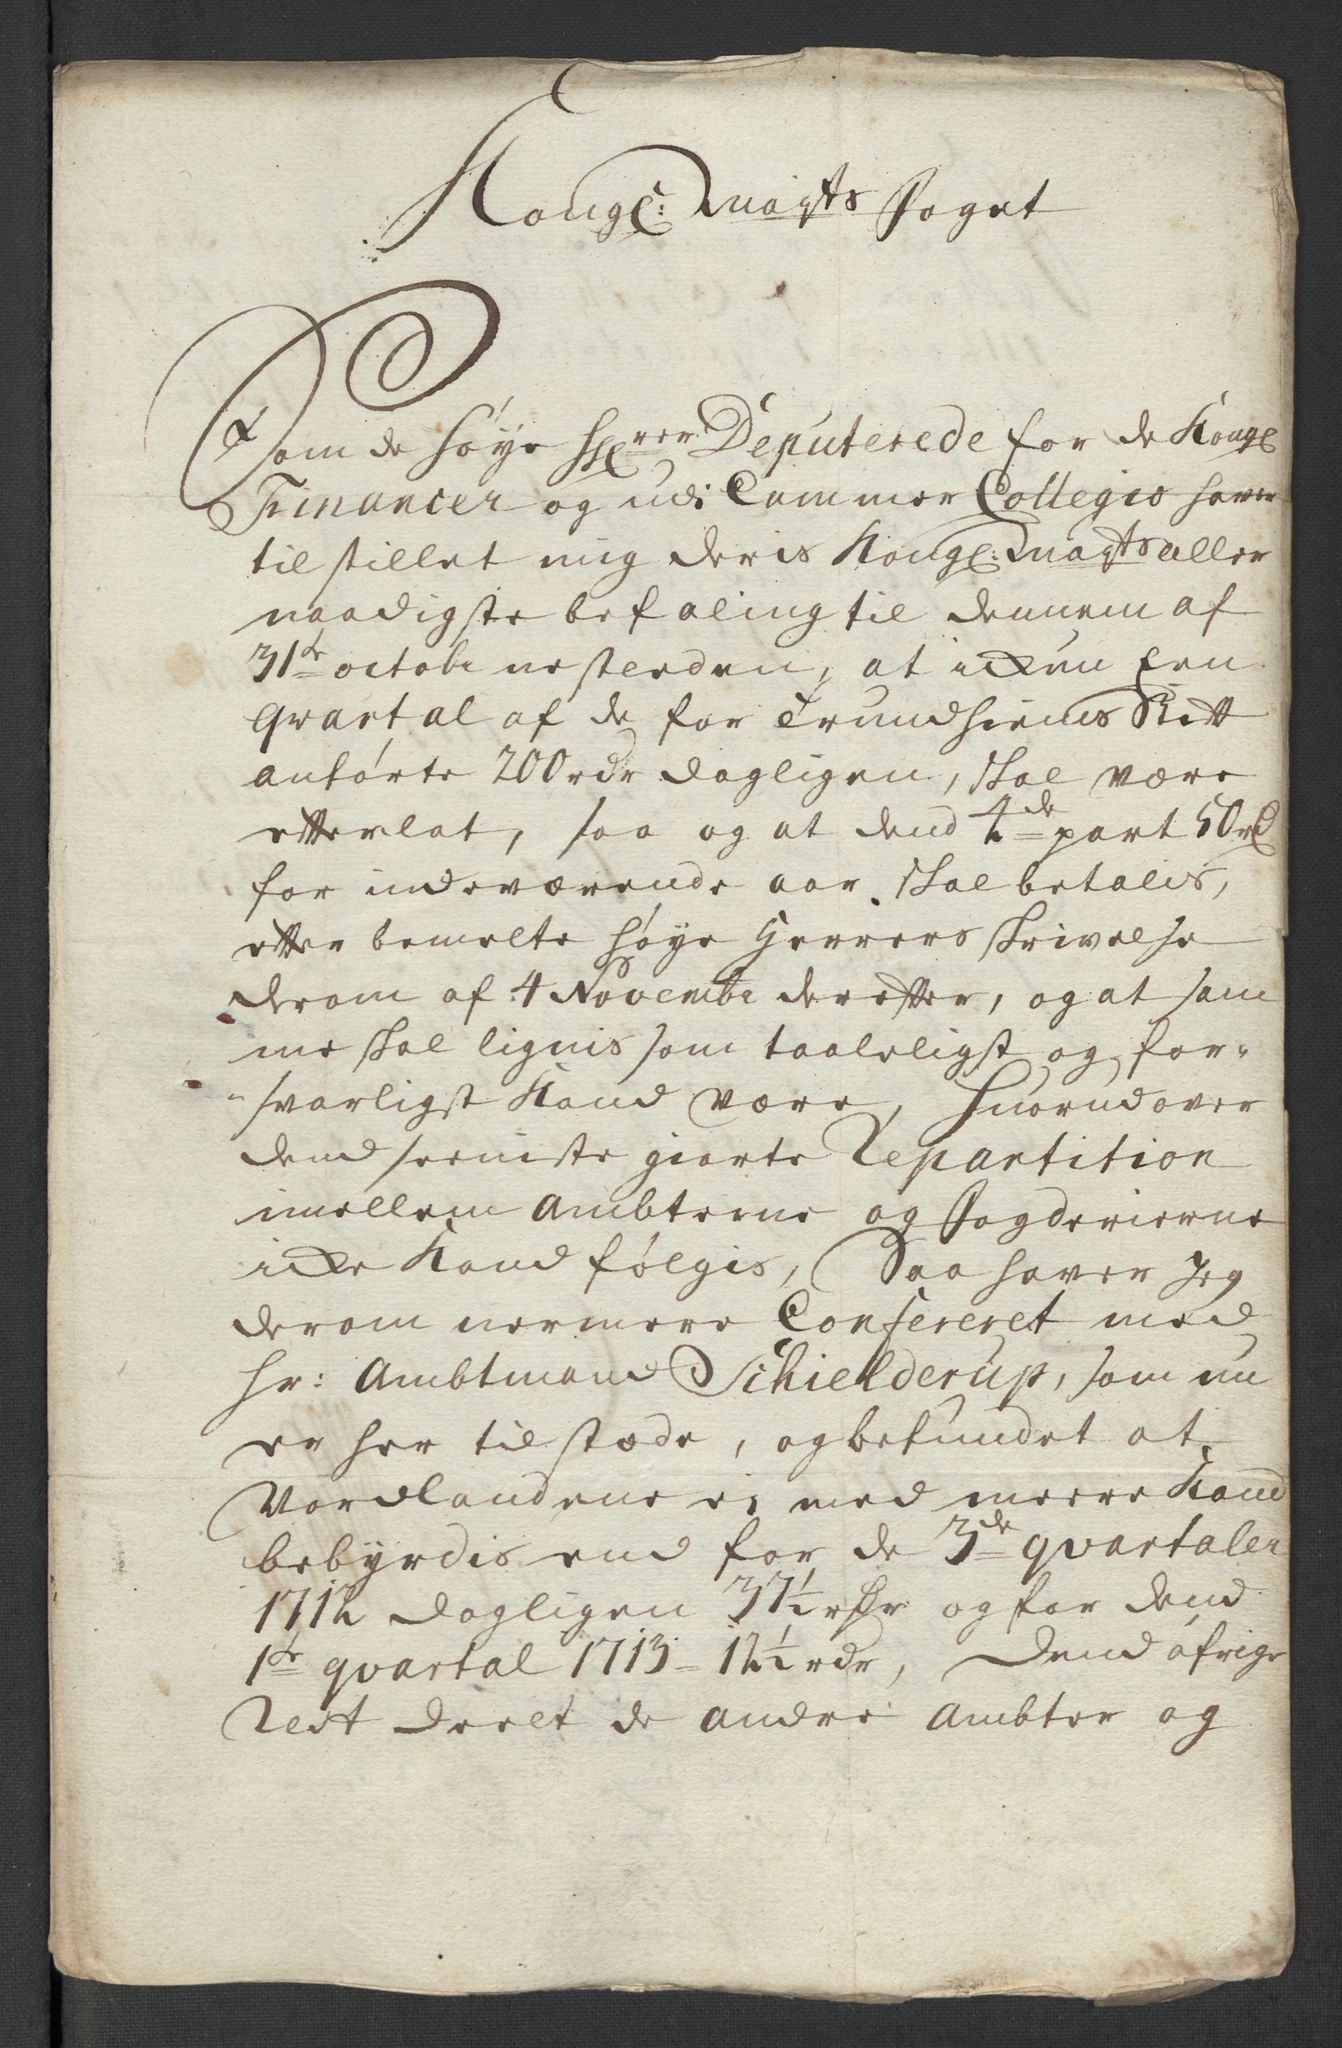 Kongl: Mayts Foget
Som de høye Hrrer Deputerede for de Kongl
Financer og udi Cammer Collegio haver
tilstillet mig deris Kongl: Mayts aller
naadigste befaling til dennem af
31te octobr nestleden, at ickun Een
qvartal af de for Trundhiems Stift
anførte 200 rdr dagligen, skal være
efterlat, saa og at dend 4de part 50 rd
for indeværende aar skal betalis,
efter bemelte høye Herrers skrivelse
derom af 4 Novembr derefter, og at sam
me skal lignis som taaleligst og for-
svarligst Kand være, Huorudover
dend seeniste giorte Repartition
imellem Ambterne og Fogderierne
icke Kand følgis, Saa haver Jeg
derom nermere Confereret med
Hr: Ambtmand Schielderup, som nu
er her tilstæde, og befundet at
Nordlandene ej med meere Kand
bebyrdis end for de 3de qvartaler
1712 dagligen 37½ rdr og for dend
1te qvartal 1713 - 12½ rdr, Dend øfrige
Rest deelt de andre Ambter og